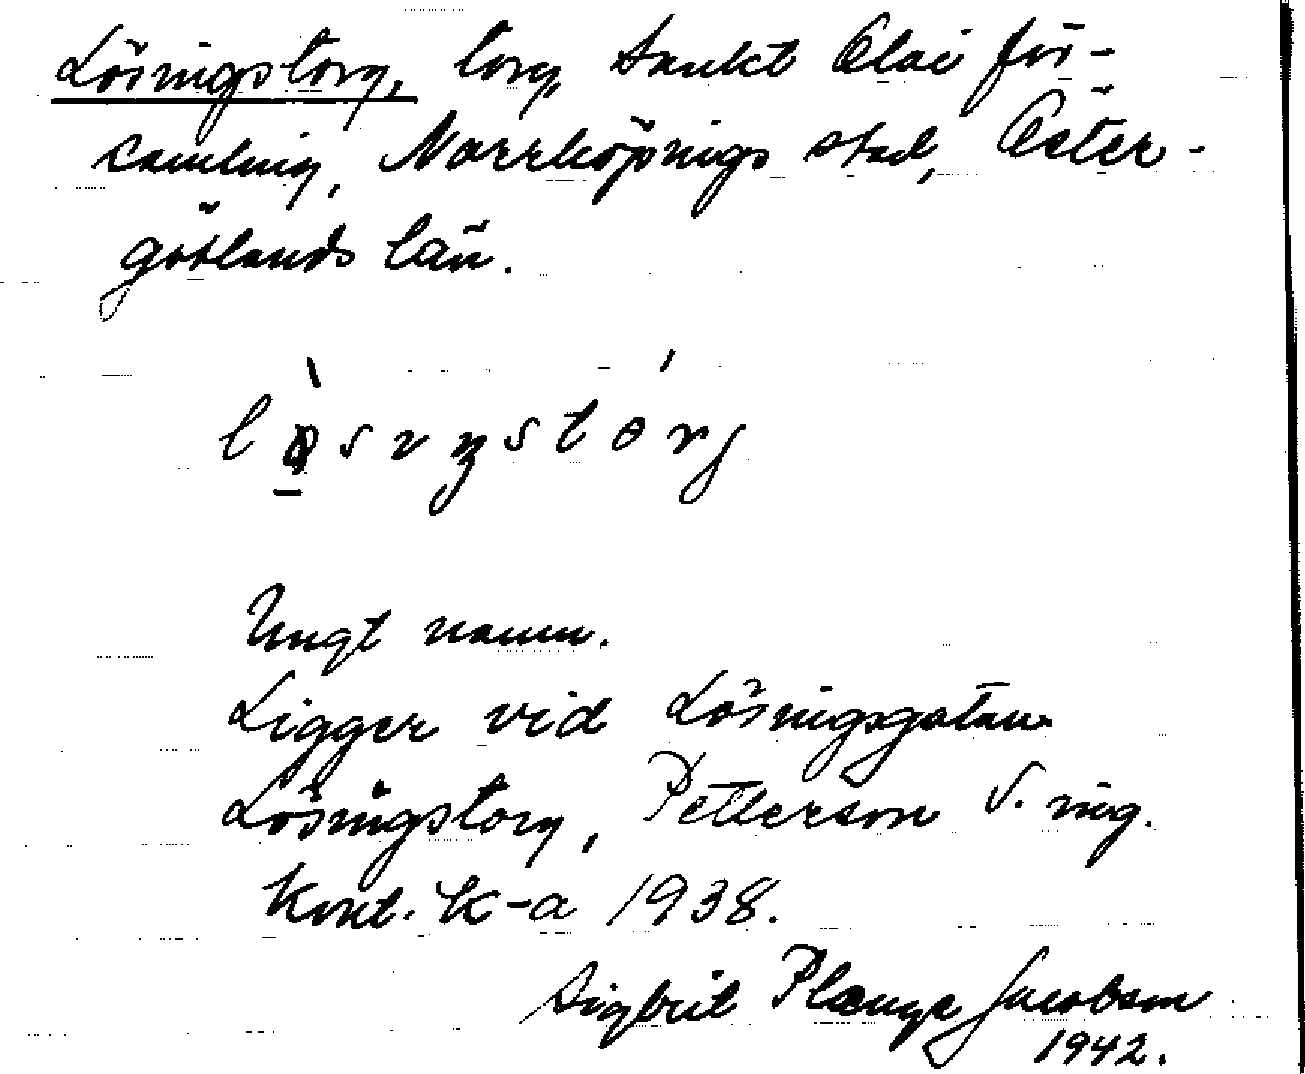 Lösingstorg, torg, Sankt Olai för-
samling, Norrköpings stad, Öster-
götlands län.
Ungt namn.
Ligger vid Lösingsgatan
Lösingstorg, Petterson S. ing.
Kont. K-a 1938.
Sigbrit Plænge Jacobson
1942.